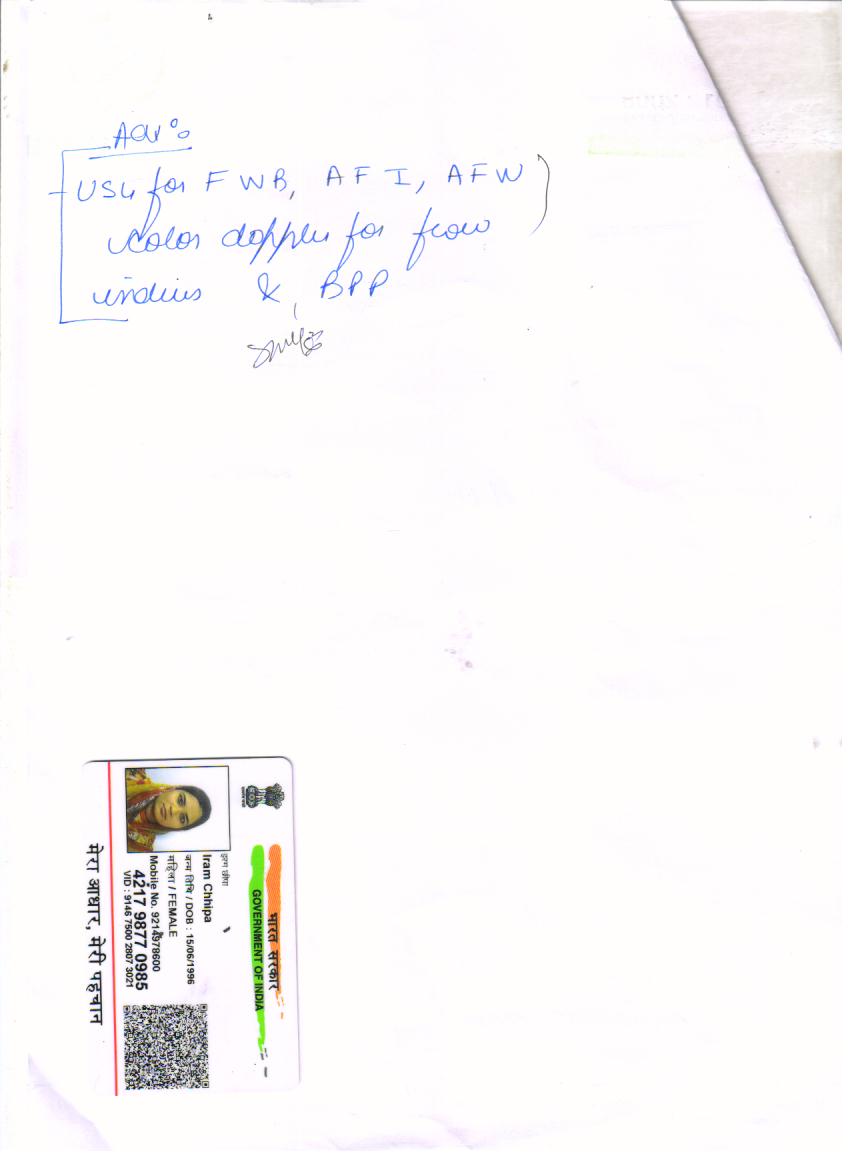 Adv:
USG for FWB, AFI, AFW
color doppler for flow
indices & BPP
भारत सरकार
GOVERNMENT OF INDIA
इरम छीपा
Iram Chhipa
जन्म तिथि / DOB : 15/06/1996
महिला / FEMALE
Mobile No. 9214978600
4217 9877 0985
VID : 9146 7500 2807 3021
मेरा आधार, मेरी पहचान